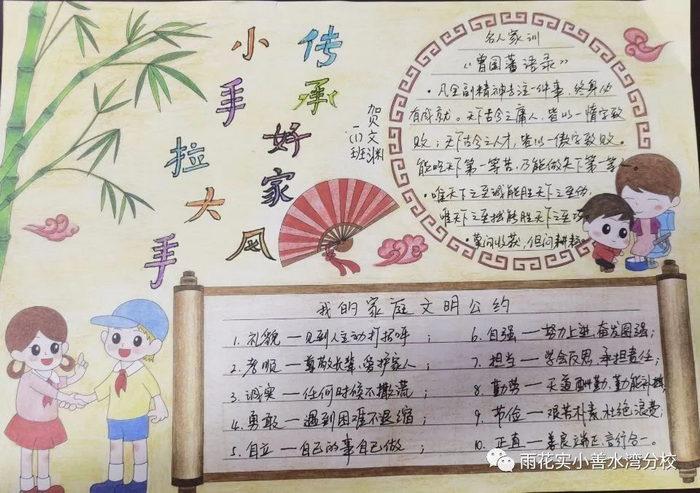 小手拉大手
传承好家风
贺文渊
(1)班
名人家训
《曾国藩语录》
·凡全副精神专注一件事，终身必
有成就。天下古今之庸人，皆以一惰字致
败；天下古今之人才，皆以一傲字致败。
能吃天下第一等苦，乃能做天下第一等
·唯天下之至诚能胜天下之至伪，
唯天下之至拙能胜天下之至巧
·莫问收获，但问耕耘
我的家庭文明公约
1.礼貌—见到人主动打招呼；
2.孝顺—尊敬长辈，爱护家人；
3.诚实—任何时候不撒谎；
4.勇敢—遇到困难不退缩；
5.自立—自己的事自己做；
6.自强—努力上进，奋发图强；
7.担当—学会反思，承担责任；
8.勤劳—天道酬勤，勤能补拙；
9.节俭—艰苦朴素，杜绝浪费；
10.正直—善良端正，言行合一。
雨花实小善水湾分校